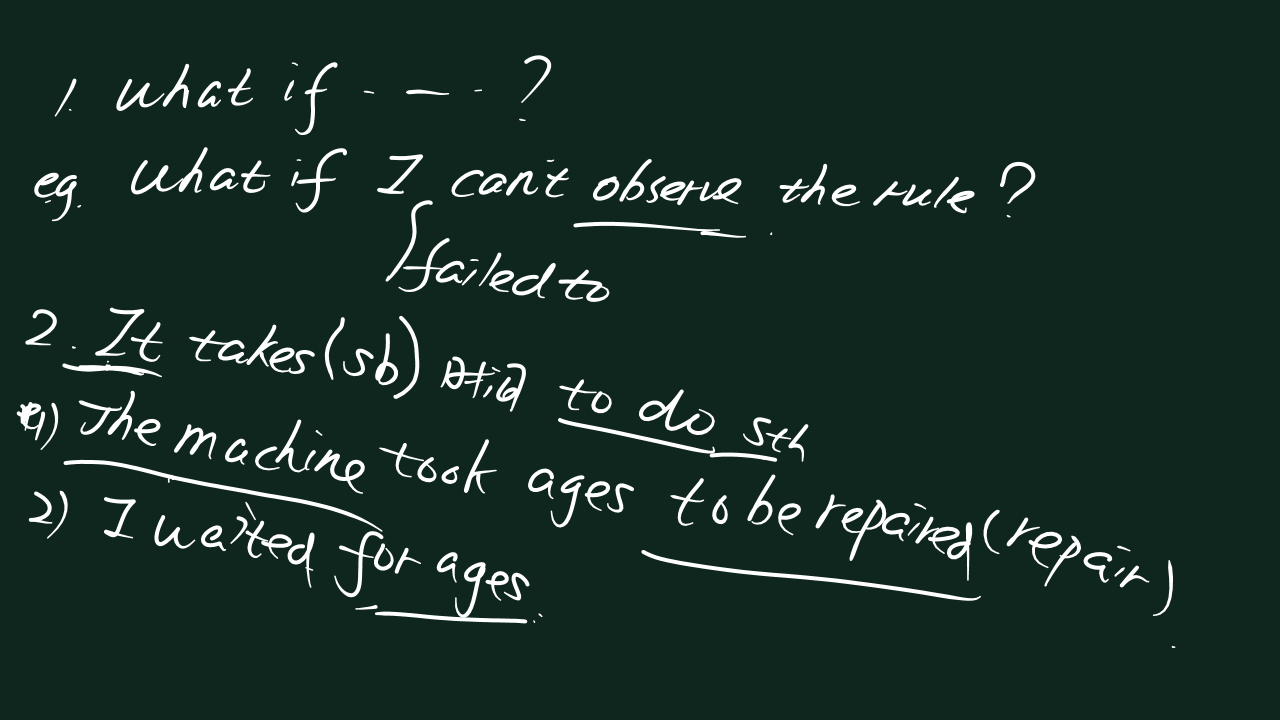 1. What if - — - ?
eg. What if I can't observe the rule?
failed to
2. It takes (sb) 时间 to do sth
1) The machine took ages to be repaired (repair)
2) I waited for ages.